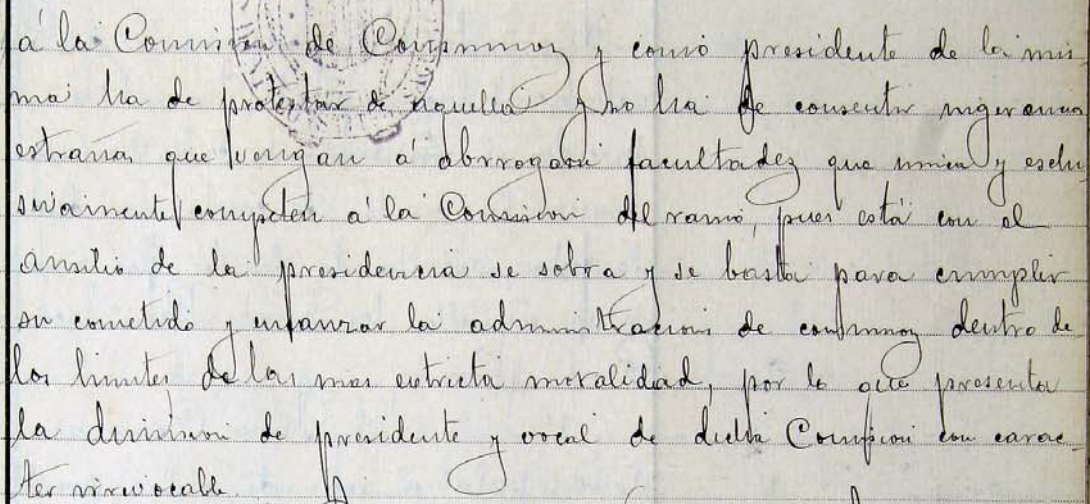 á la Comision de Consumos y como presidente de la mis
ma ha de protestar de aquella y no ha de consentir ingerencias
estrañas que vengan á abrrogarse facultades que unica y esclu
sivamente competen á la Comision del ramo, pues está con el
ausilio de la presidencia se sobra y se basta para cumplir
su cometido y enfanzar la administracion de consumos dentro de
los limites de las mas estricta moralidad, por lo que presenta
la dimision de presidente y vocal de dicha Comision con carac
ter irrevocable.